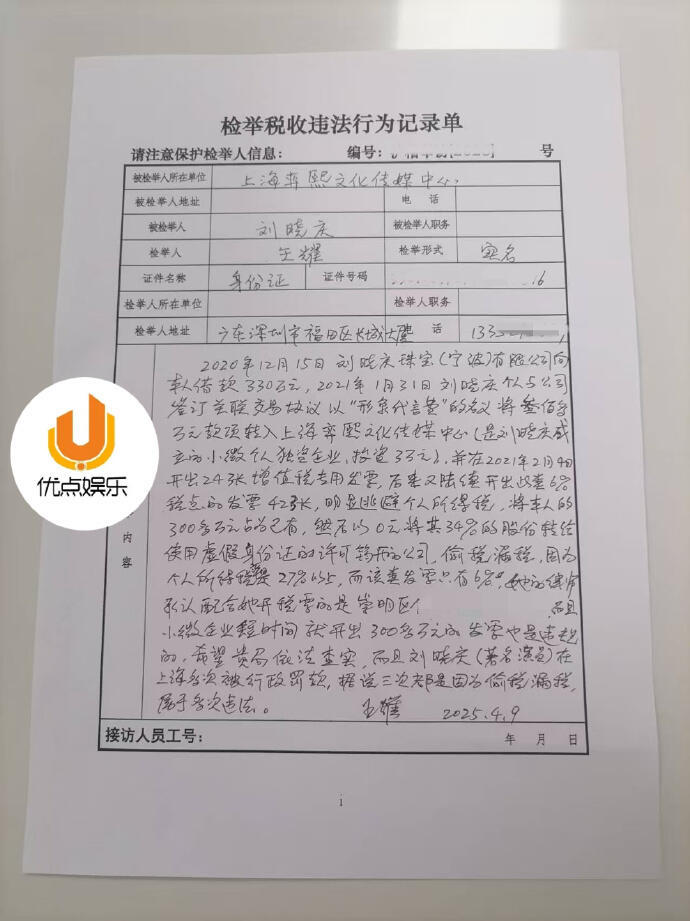 检举税收违法行为记录单
请注意保护检举人信息: 编号: 号
被检举人所在单位 上海弈熙文化传媒中心
被检举人地址 电 话
被检举人 刘晓庆 被检举人职务
检举人 王耀 检举形式 实名
证件名称 身份证 证件号码 16
检举人所在单位 检举人职务
检举人地址 广东深圳市福田区长城大厦 话 133
2020年12月15日刘晓庆珠宝(宁波)有限公司向
本人借款330万元,2021年1月31日刘晓庆个人与公司
签订关联交易协议以“形象代言费”的名义将叁佰多
万元款项转入上海弈熙文化传媒中心(是刘晓庆成
立的小微个人独资企业,投资3万元),并在2021年2月4日
开出24张增值税专用发票,后来又陆续开出此查6%
税点的发票42张,明显逃避个人所得税,将本人的
300多万元占为己有,然后以0元将其34%的股份转给
使用虚假身份证的许可筠开的公司,偷税漏税,因为
个人所得税是27%以上,而该查发票只有6%,她的律师
承认配合她开税票的是崇明区 而且
小微企业短时间就开出300多万元的发票也是违规
的,希望贵局依法查实,而且刘晓庆(著名演员)在
上海多次被行政罚款,据说三次都是因为偷税漏税,
属于多次违法。 王耀 2025.4.9
内容
接访人员工号: 年 月 日
1
优点娱乐